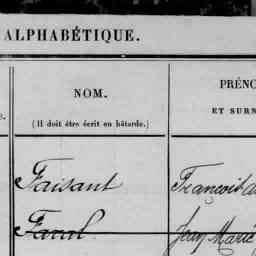 ALPHABÉTIQUE.
NOM.
(Il doit être écrit en bâtarde.)
PRÉNO
ET SURN
Faisant
François
Faval
Jean Marie